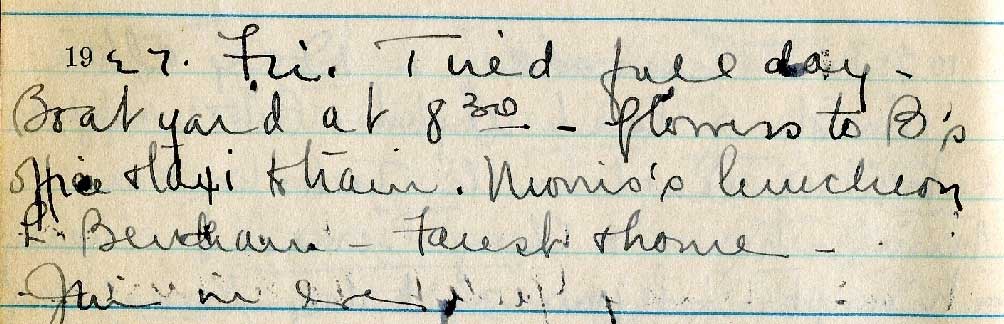 1927. Fri. Tired full day -
Boat yard at 8 30 - flowers to B's
office & taxi to train. Morris's luncheon
- & home -
in eve